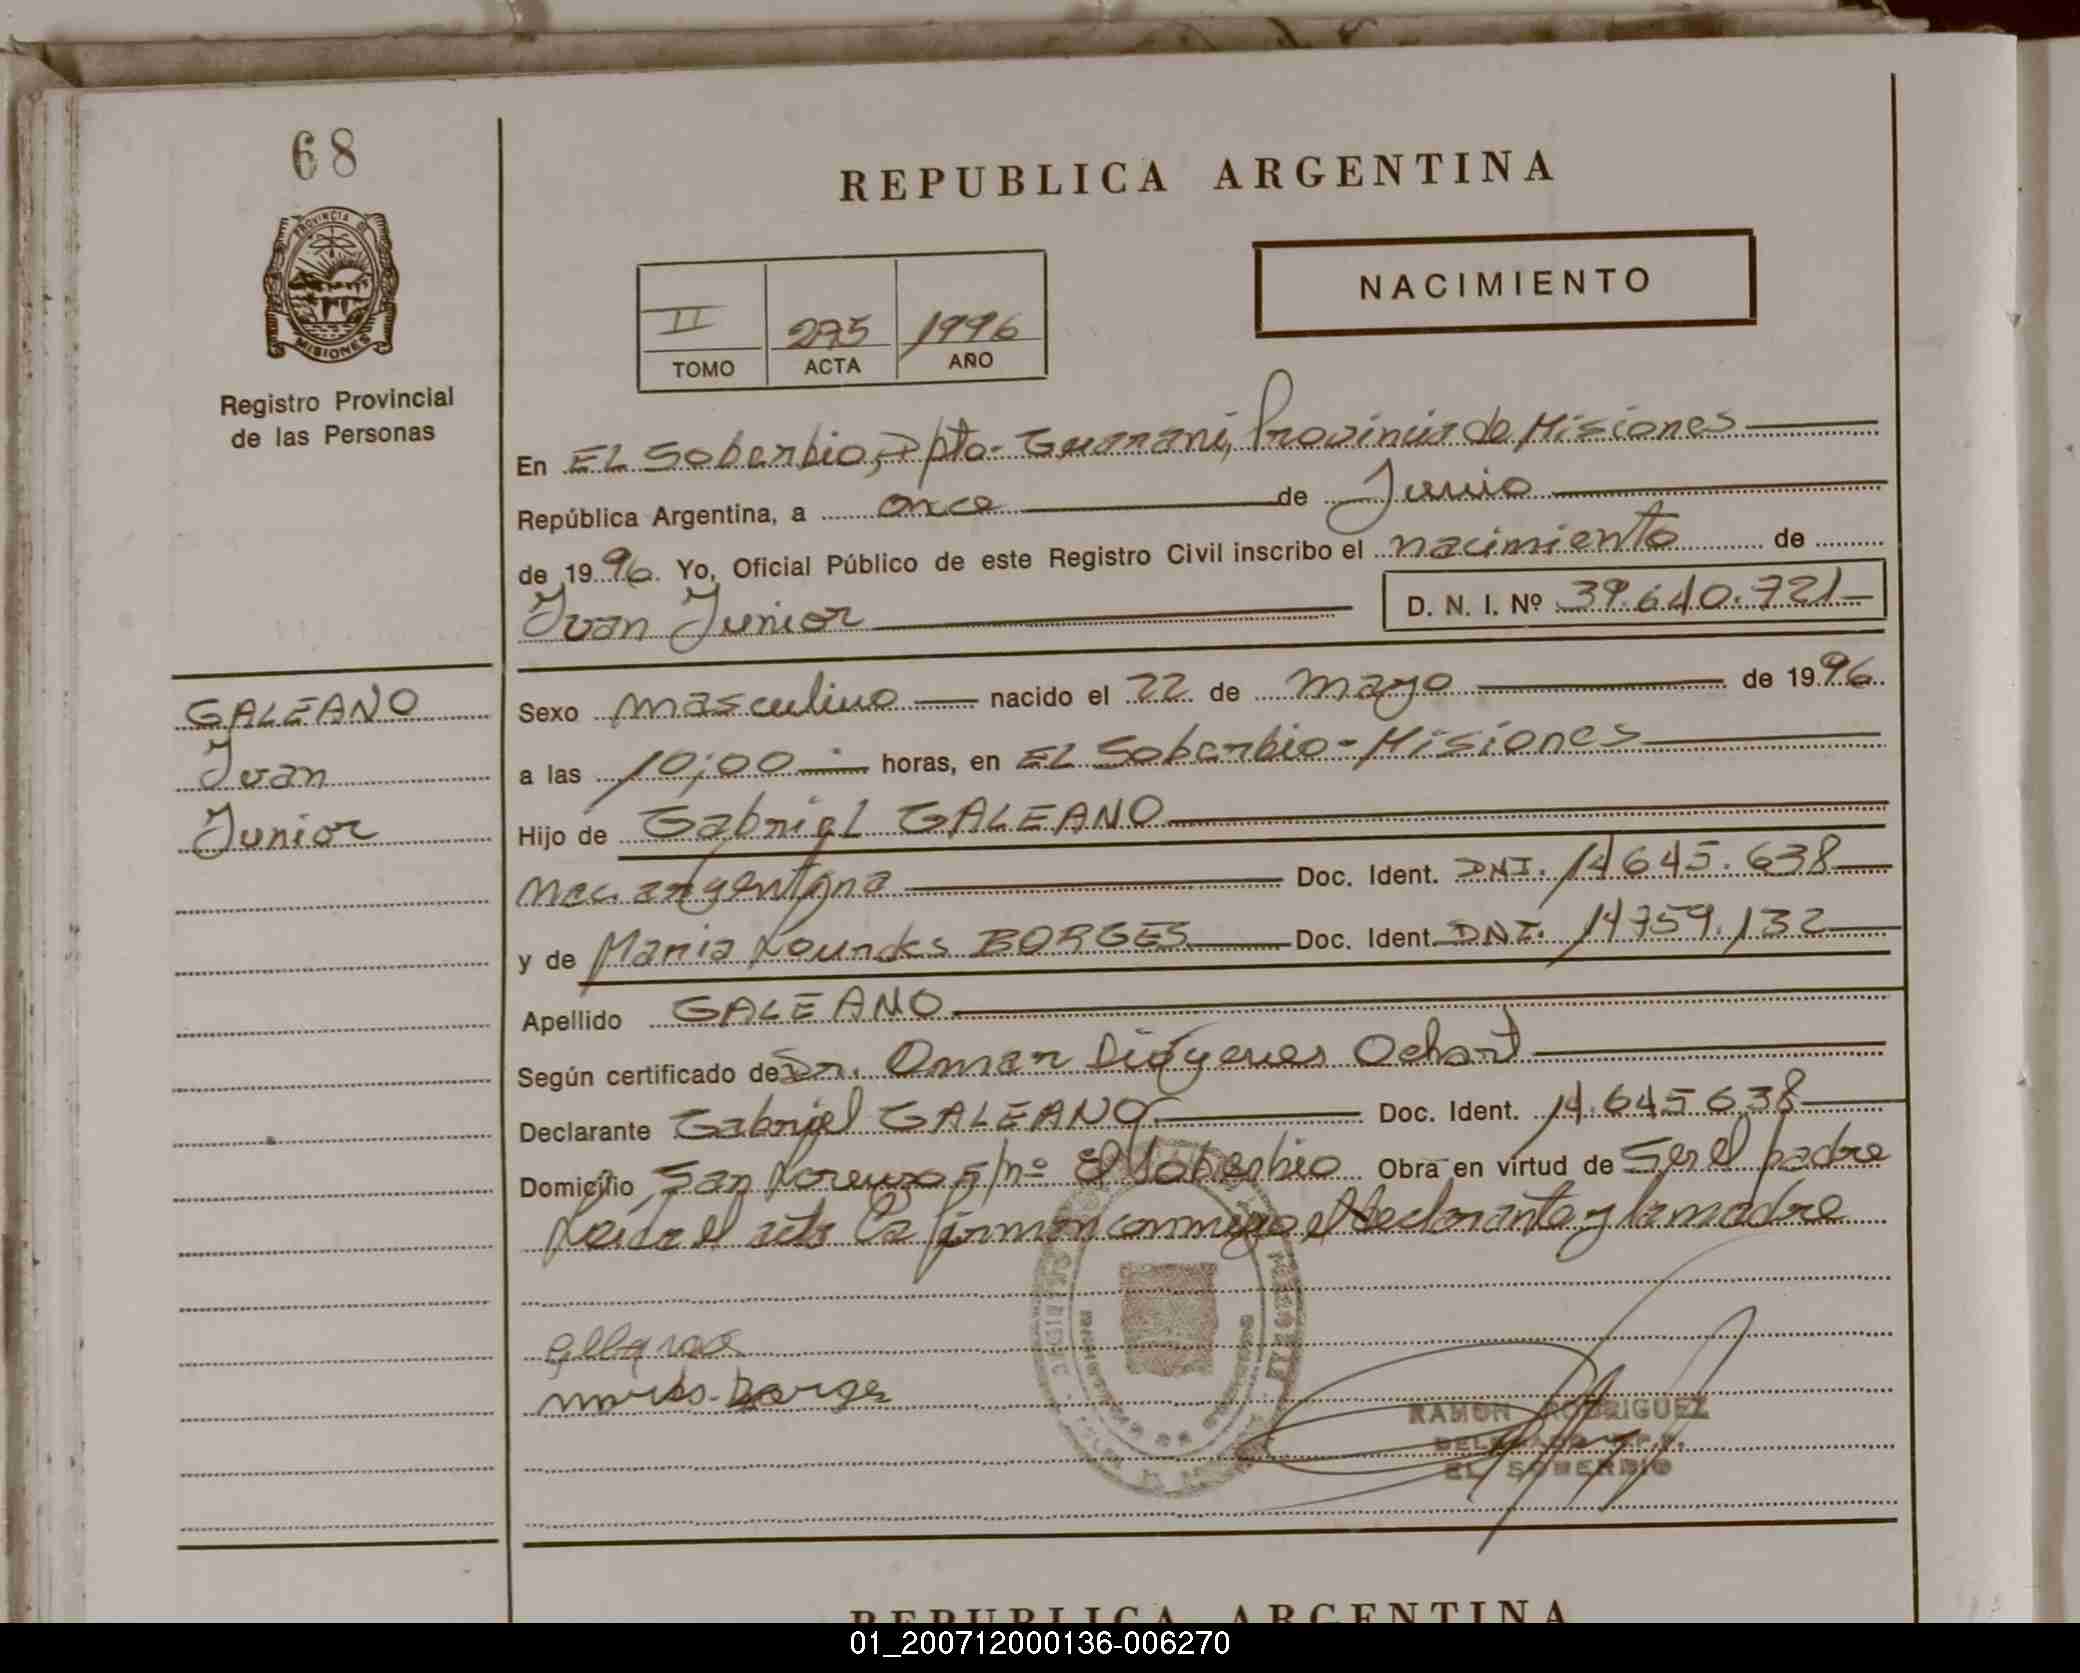 68
PROVINCIA DE
MISIONES
Registro Provincial
de las Personas
REPUBLICA ARGENTINA
NACIMIENTO
II 275 1996
TOMO ACTA AÑO
En EL Soberbio, Dpto- Guarani, Provincia de Misiones
República Argentina, a once de Junio
de 1996. Yo, Oficial Público de este Registro Civil inscribo el nacimiento de
Ivan Junior D. N. I. Nº 39.640.721
GALEANO
Ivan
Junior
Sexo masculino nacido el 22 de mayo de 1996
a las 10;00 horas, en EL Soberbio-Misiones
Hijo de Gabriel GALEANO
nac. argentina Doc. Ident. DNI. 14645.638
y de Maria Lourdes BORGES Doc. Ident. DNI. 14759.132
Apellido GALEANO
Según certificado de Dr. Omar Diógenes Ochart
Declarante Gabriel GALEANO Doc. Ident. 14.645638
Domicilio San Lorenzo s/nº El Soberbio Obra en virtud de ser el padre
Leída el acta la firman conmigo el declarante y la madre
RAMON RODRIGUEZ
EL SOBERBIO
REPUBLICA ARGENTINA
01_200712000136-006270